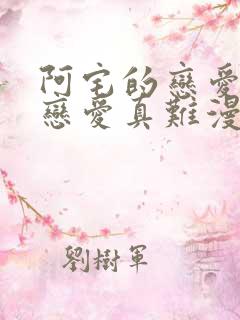 阿宅的戀愛
戀愛真難漫
劉樹軍